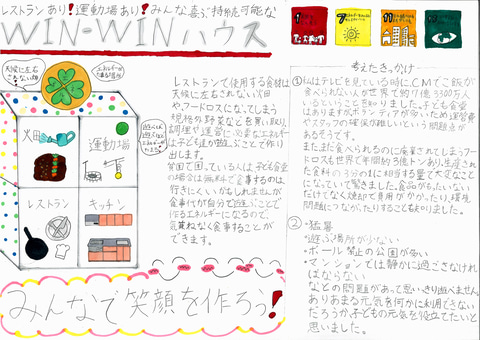 レストランあり!運動場あり!みんな喜ぶ持続可能な
WIN-WINハウス
天候に左右
されない畑
畑
運動場
レストラン
キッチン
レストランで使用する食材は
天候に左右されない畑
やフードロスになってしまう
規格外野菜などを買い取り、
調理や運営に必要なエネルギー
は子ども達が遊ぶことで作り
出します。
貧困で困っている人は子ども食堂
の場合は無料で食事するのは
行きにくいかもしれませんが
食事代が自分で遊ぶことで
作るエネルギーになるので、
気兼ねなく食事することが
できます。
みんなで笑顔を作ろう!
考えたきっかけ
①私はテレビを見ている時にCMでご飯が
食べられない人が世界で約7億3300万人
いるということを知りました。子ども食堂
はありますがボランティアが多いため運営費
やスタッフの確保が難しいという問題点が
あるそうです。
まだまだ食べられるのに廃棄されてしまうフー
ドロスも世界で年間約13億トンあり生産され
た食料の3分の1に相当する量で大変なことに
なっていて驚きました。食品がもったいない
だけでなく焼却で費用がかかったり、環境
問題につながったりすることも知りました。
② ・猛暑
・遊ぶ場所が少ない
・ボール禁止の公園が多い
・マンションでは静かに過ごさなければ
ならない
などの問題があって思いっきり遊べません。
ありあまる元気を何かに利用できない
だろうか、子どもの元気を役立てたいと
思いました。